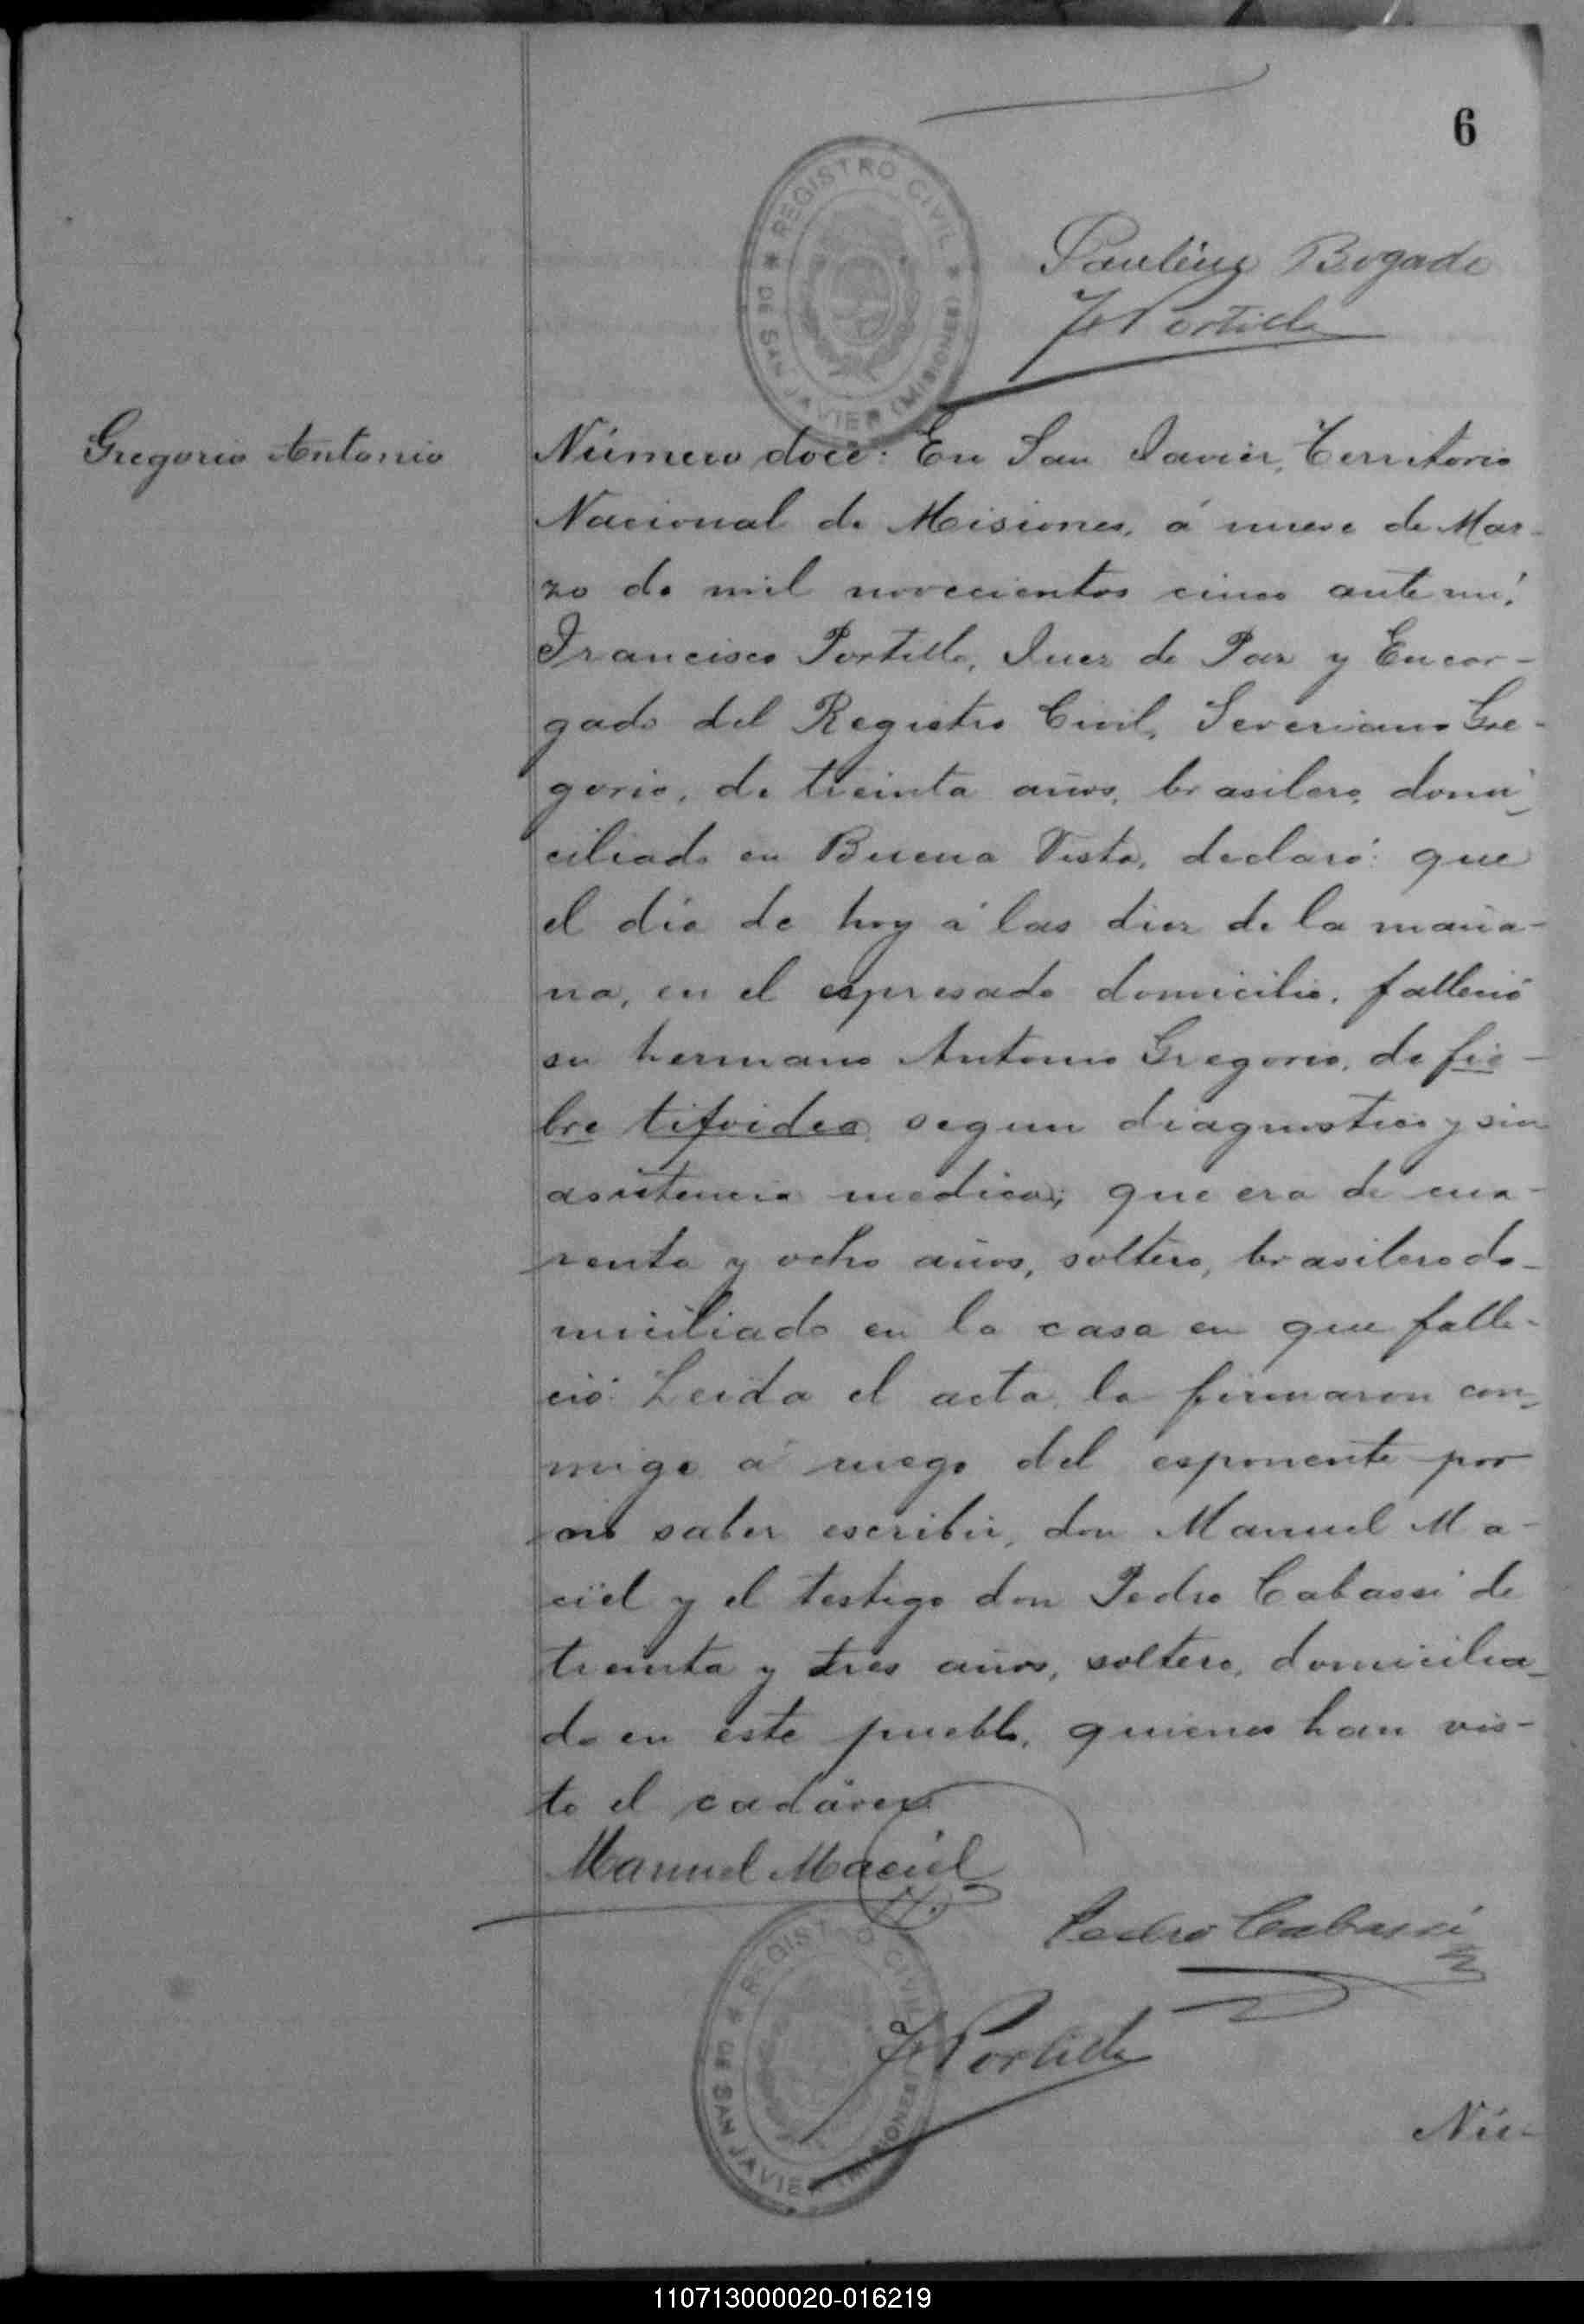 6
REGISTRO CIVIL
DE SAN JAVIER (MISIONES)
Paulino Bogado
F Portillo
Gregorio Antonio
Número doce: En San Javier, Territorio
Nacional de Misiones, á nueve de Mar-
zo de mil novecientos cinco ante mí:
Francisco Portillo, Juez de Paz y Encar-
gado del Registro Civil, Severiano Gre-
gorio, de treinta años, brasilero, domi-
ciliado en Buena Vista, declaró: que
el día de hoy á las diez de la maña-
na, en el espresado domicilio, falleció
su hermano Antonio Gregorio, de fie-
bre tifoidea, segun diagnostico y sin
asistencia medica; que era de cua-
renta y ocho años, soltero, brasilero do-
miciliado en la casa en que falle-
ció. Leida el acta, la firmaron con-
migo a ruego del esponente por
no saber escribir, don Manuel Ma-
ciel y el testigo don Pedro Cabassi de
treinta y tres años, soltero, domicilia-
do en este pueblo, quienes han vis-
to el cadáver.
Manuel Maciel
Pedro Cabassi
REGISTRO CIVIL
DE SAN JAVIER (MISIONES)
F Portillo
Nú-
110713000020-016219